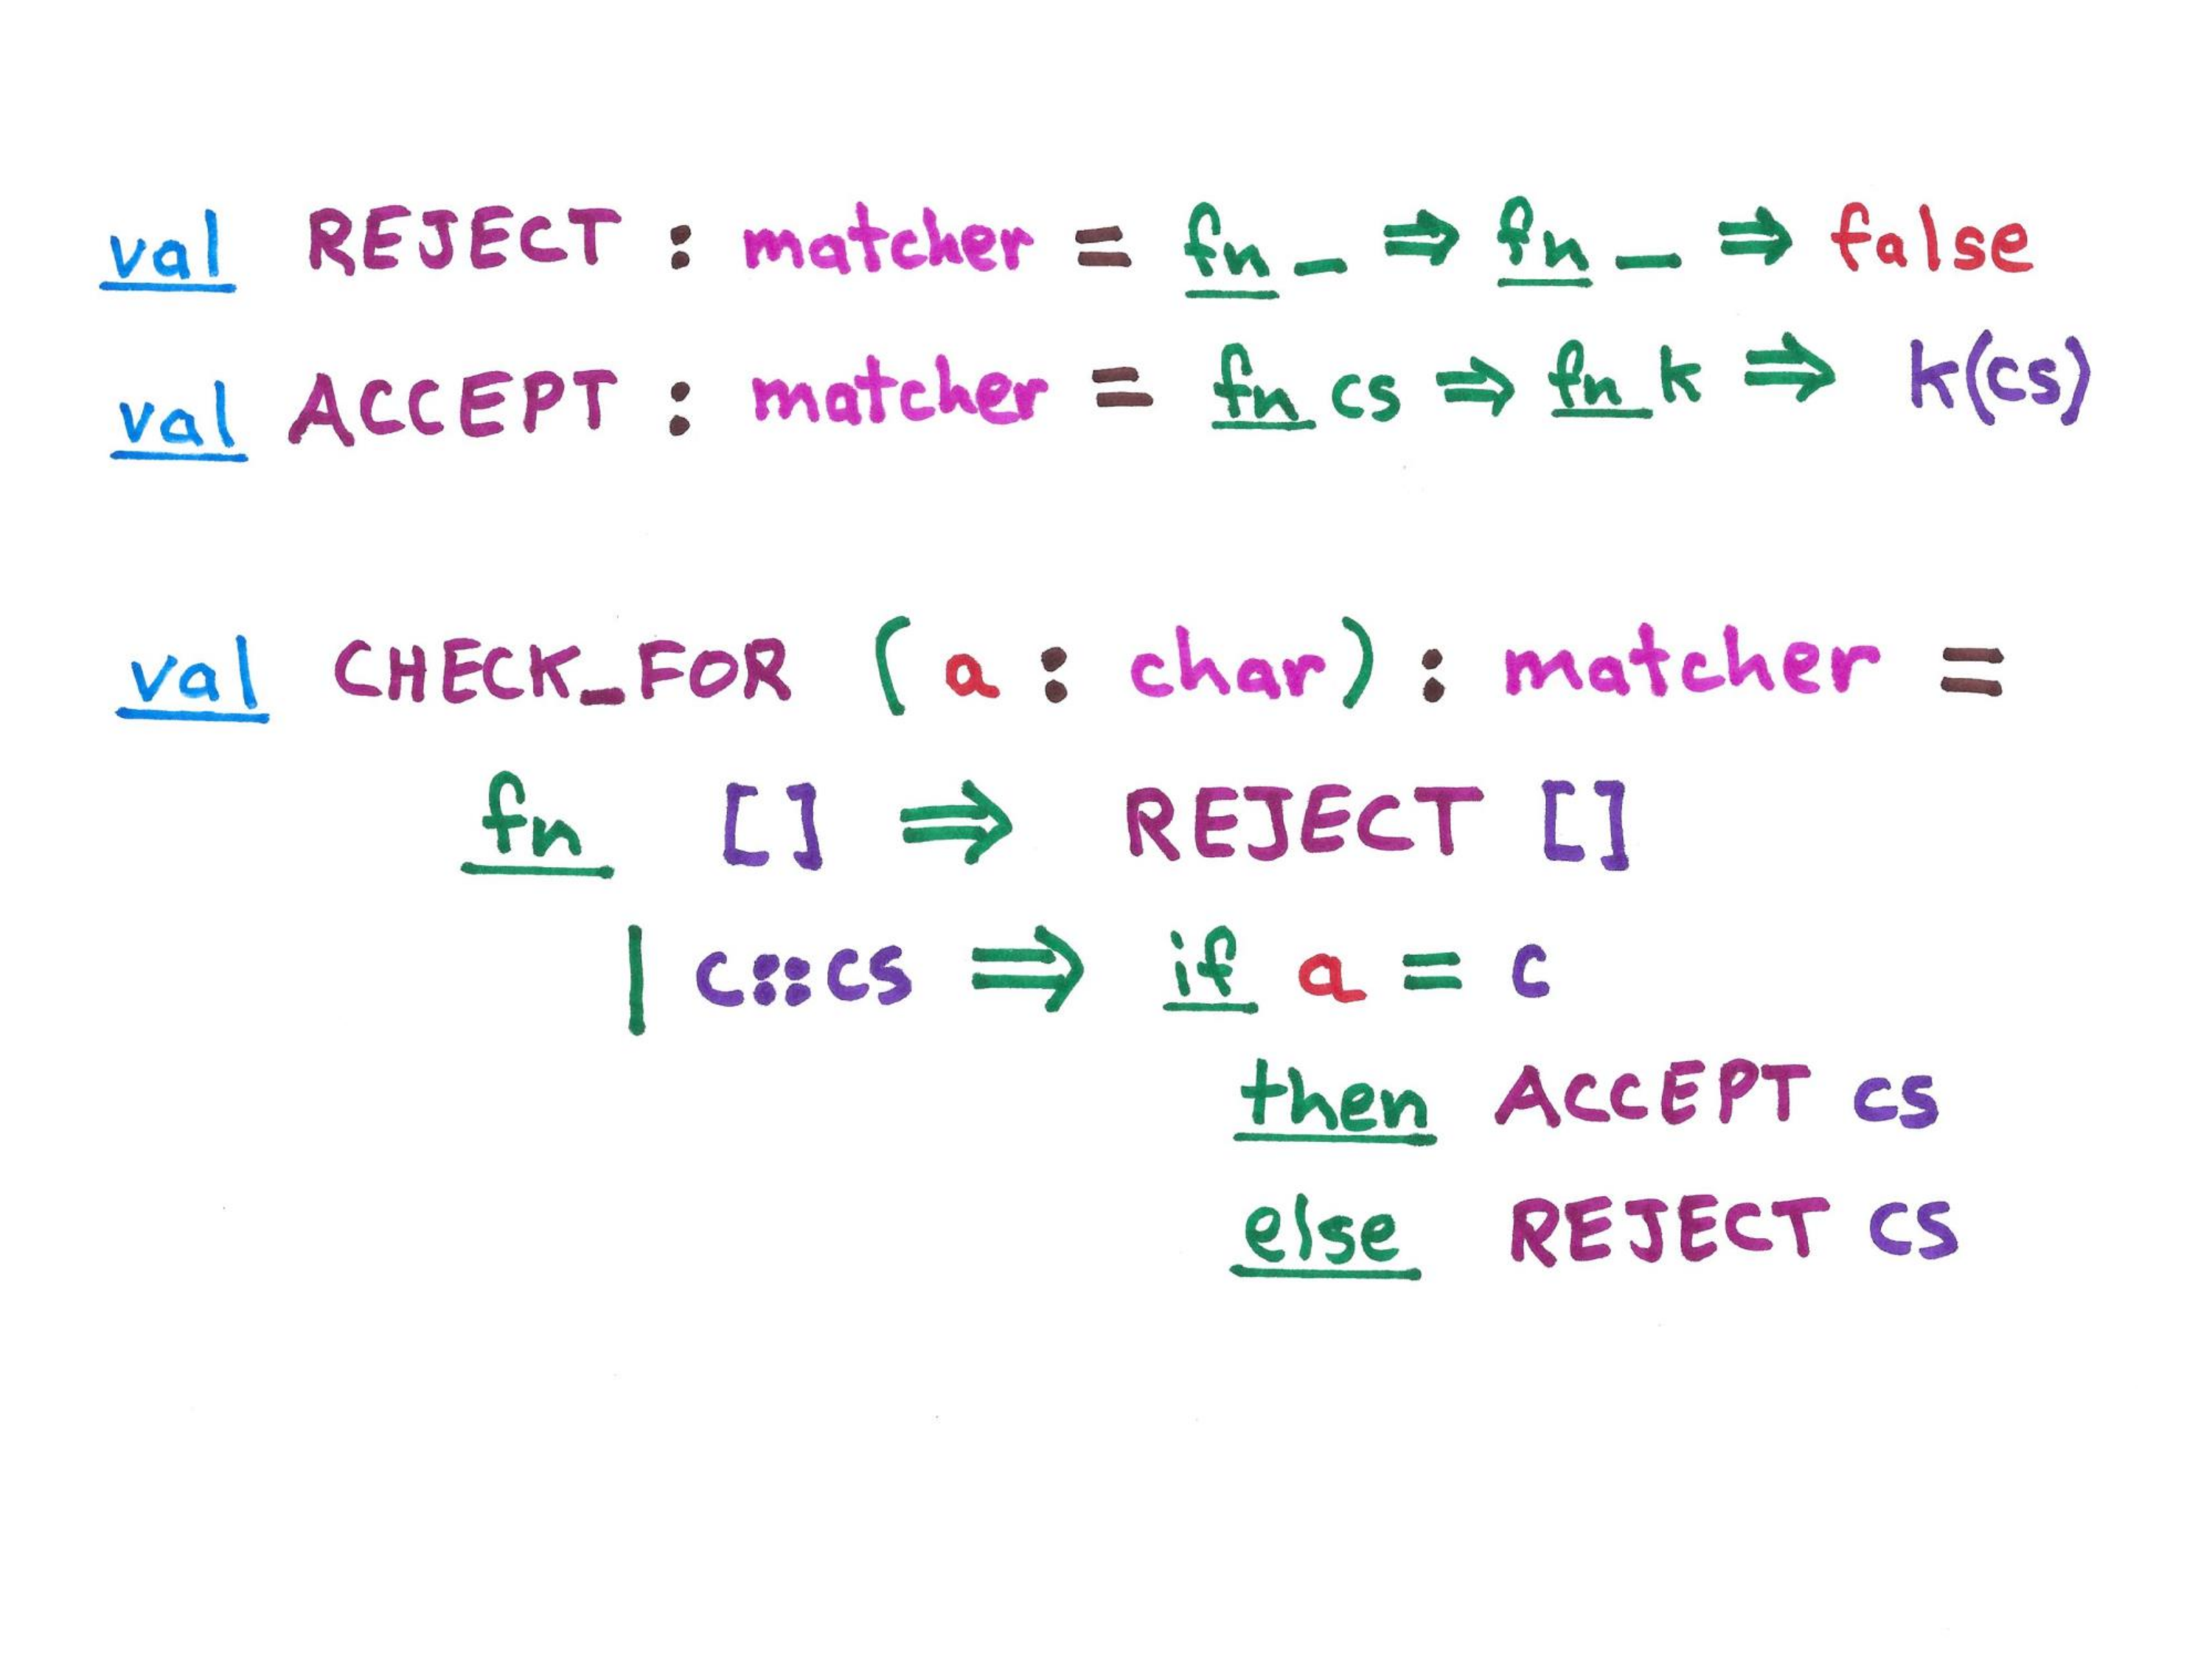 val REJECT : matcher = fn _ ⇒ fn _ ⇒ false
val ACCEPT : matcher = fn cs ⇒ fn k ⇒ k(cs)
val CHECK_FOR (a : char) : matcher =
fn [] ⇒ REJECT []
| c::cs ⇒ if a = c
then ACCEPT cs
else REJECT cs